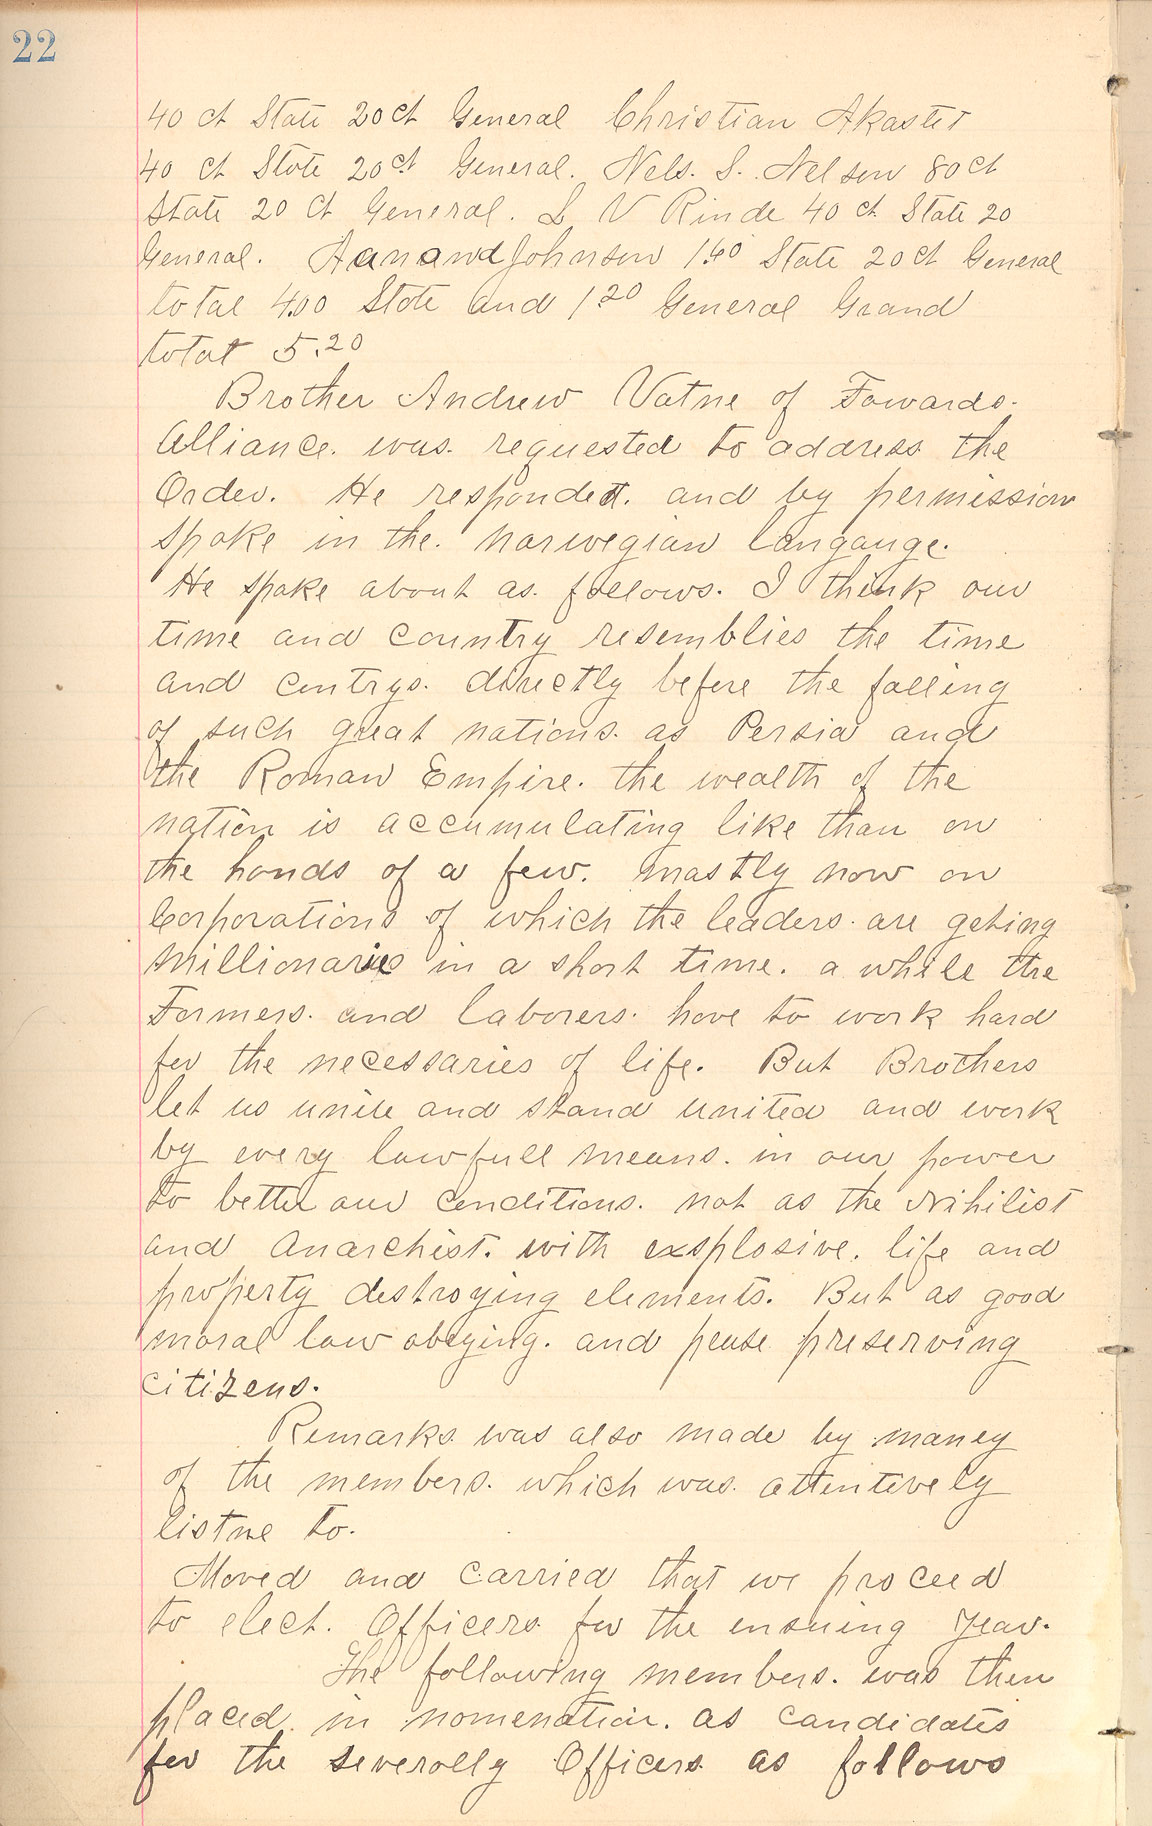 22
40 ct State 20 ct General Christian Akaster
40 ct State 20 ct General. Nels. S. Nelson 80 ct
State 20 ct General. L V Rinde 40 ct State 20
General. Johnson 1.60 State 20 ct General
total 4.00 State and 1 20 General Grand
total 5.20
Brother Andrew Vatne of Fowards.
Alliance. was. requested to address the
Order. He responded. and by permission
spoke in the. norwegian langauge.
He spoke about as. follows. I think our
time and country resemblies the time
and centrys. directly before the falling
of such great nations. as Persia and
the Roman Empire. the wealth of the
nation is accumulating like than on
the hands of a few. mastly now on
Corporations of which the leaders. are geting
millionaries in a short time. a while the
Farmers. and laborers. have to work hard
for the necessaries of life. But Brothers
let us unite and stand united and work
by every lawfull means. in our power
to better our conditions. not as the Nihilist
and Anarchist. with exsplosive. life and
property destroying elements. But as good
moral law obeying. and pease preserving
citizens.
Remarks was also made by maney
of the members. which was. attentively
listne to.
Moved and carried that we proceed
to elect. Officers for the ensuing year.
The following members. was then
placed in nomenation. as candidates
for the severolly Officers as follows